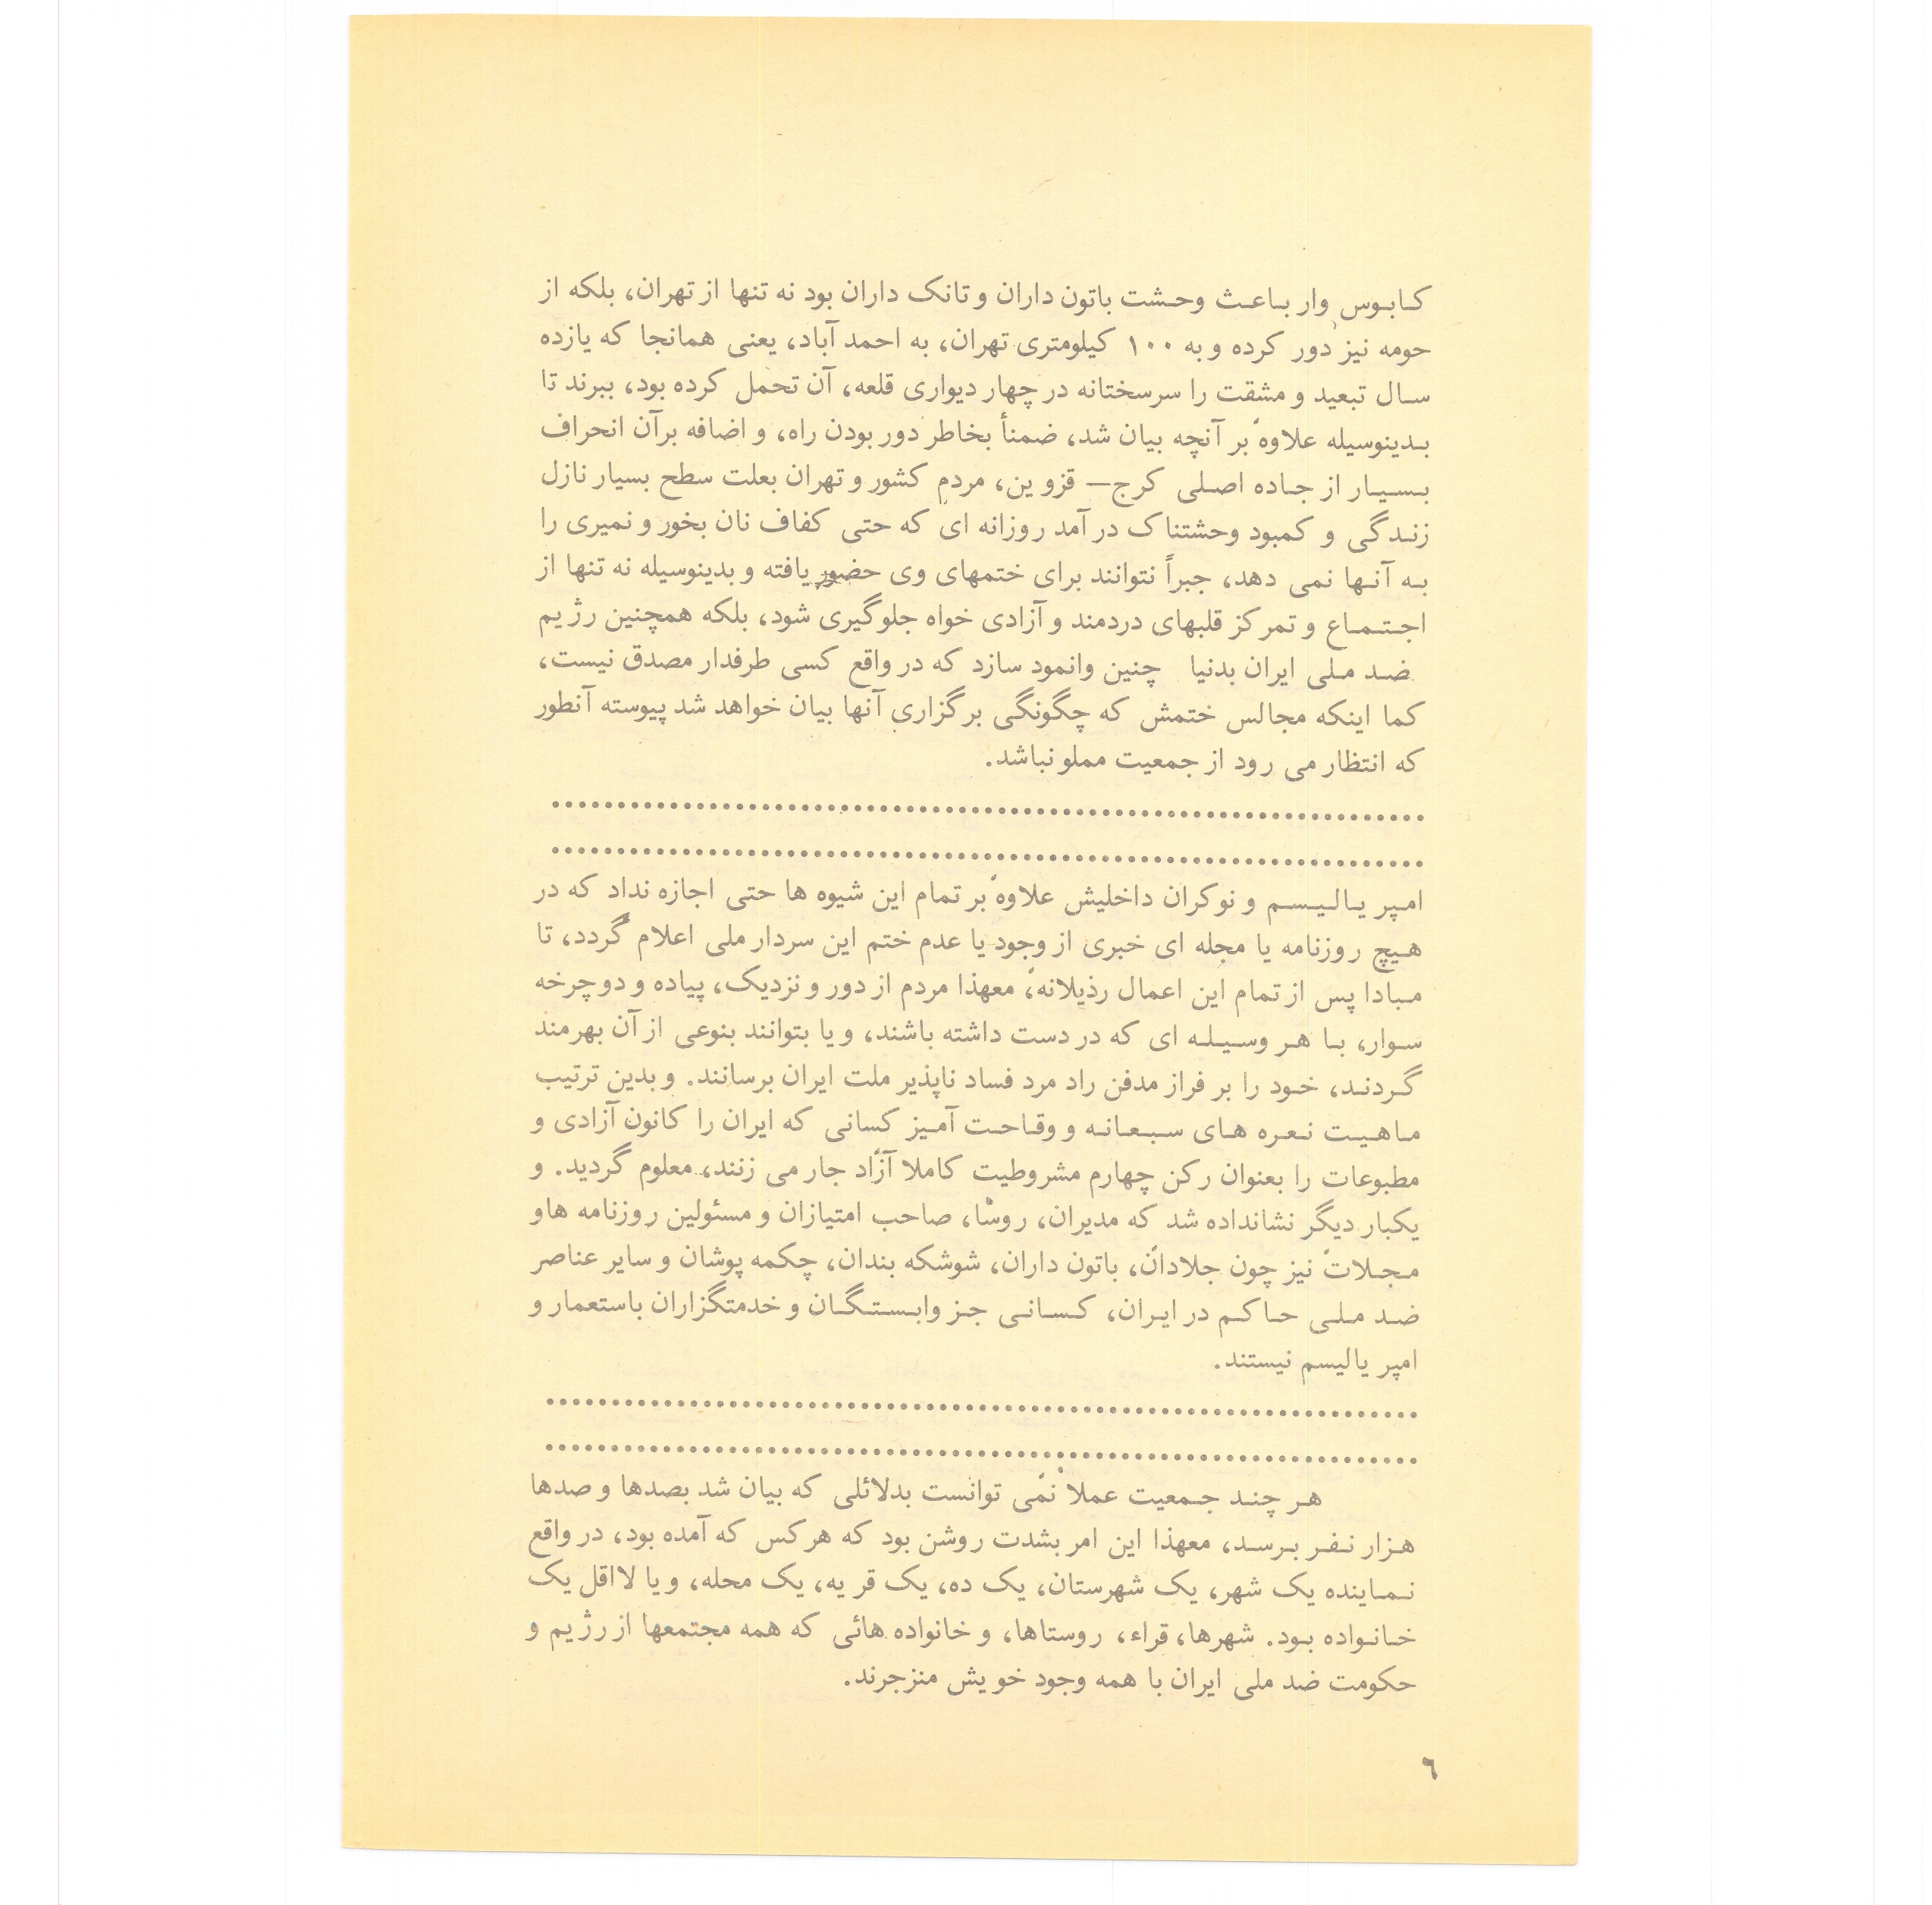 کابوس وار باعث وحشت باتون داران و تانک داران بود نه تنها از تهران، بلکه از
حومه نیز دور کرده و به ۱۰۰ کیلومتری تهران، به احمد آباد، یعنی همانجا که یازده
سال تبعید و مشقت را سرسختانه در چهار دیواری قلعه، آن تحمل کرده بود، ببرند تا
بدینوسیله علاوه بر آنچه بیان شد، ضمناً بخاطر دور بودن راه، و اضافه برآن انحراف
بسیار از جاده اصلی کرج— قزوین، مردم کشور و تهران بعلت سطح بسیار نازل
زندگی و کمبود وحشتناک در آمد روزانه ای که حتی کفاف نان بخور و نمیری را
به آنها نمی دهد، جبراً نتوانند برای ختمهای وی حضور یافته و بدینوسیله نه تنها از
اجتماع و تمرکز قلبهای دردمند و آزادی خواه جلوگیری شود، بلکه همچنین رژیم
ضد ملی ایران بدنیا چنین وانمود سازد که در واقع کسی طرفدار مصدق نیست،
کما اینکه مجالس ختمش که چگونگی برگزاری آنها بیان خواهد شد پیوسته آنطور
که انتظار می رود از جمعیت مملو نباشد.
....................................................................
....................................................................
امپریالیسم و نوکران داخلیش علاوه بر تمام این شیوه ها حتی اجازه نداد که در
هیچ روزنامه یا مجله ای خبری از وجود یا عدم ختم این سردار ملی اعلام گردد، تا
مبادا پس از تمام این اعمال رذیلانه، معهذا مردم از دور و نزدیک، پیاده و دوچرخه
سوار، با هر وسیله ای که در دست داشته باشند، و یا بتوانند بنوعی از آن بهرمند
گردند، خود را بر فراز مدفن راد مرد فساد ناپذیر ملت ایران برسانند. و بدین ترتیب
ماهیت نعره های سبعانه و وقاحت آمیز کسانی که ایران را کانون آزادی و
مطبوعات را بعنوان رکن چهارم مشروطیت کاملا آزاد جار می زنند، معلوم گردید. و
یکبار دیگر نشانداده شد که مدیران، روسا، صاحب امتیازان و مسئولین روزنامه هاو
مجلات نیز چون جلادان، باتون داران، شوشکه بندان، چکمه پوشان و سایر عناصر
ضد ملی حاکم در ایران، کسانی جز وابستگان و خدمتگزاران باستعمار و
امپریالیسم نیستند.
....................................................................
....................................................................
هر چند جمعیت عملا نمی توانست بدلائلی که بیان شد بصدها و صدها
هزار نفر برسد، معهذا این امر بشدت روشن بود که هرکس که آمده بود، در واقع
نماینده یک شهر، یک شهرستان، یک ده، یک قریه، یک محله، و یا لااقل یک
خانواده بود. شهرها، قراء، روستاها، و خانواده هائی که همه مجتمعها از رژیم و
حکومت ضد ملی ایران با همه وجود خویش منزجرند.
٦